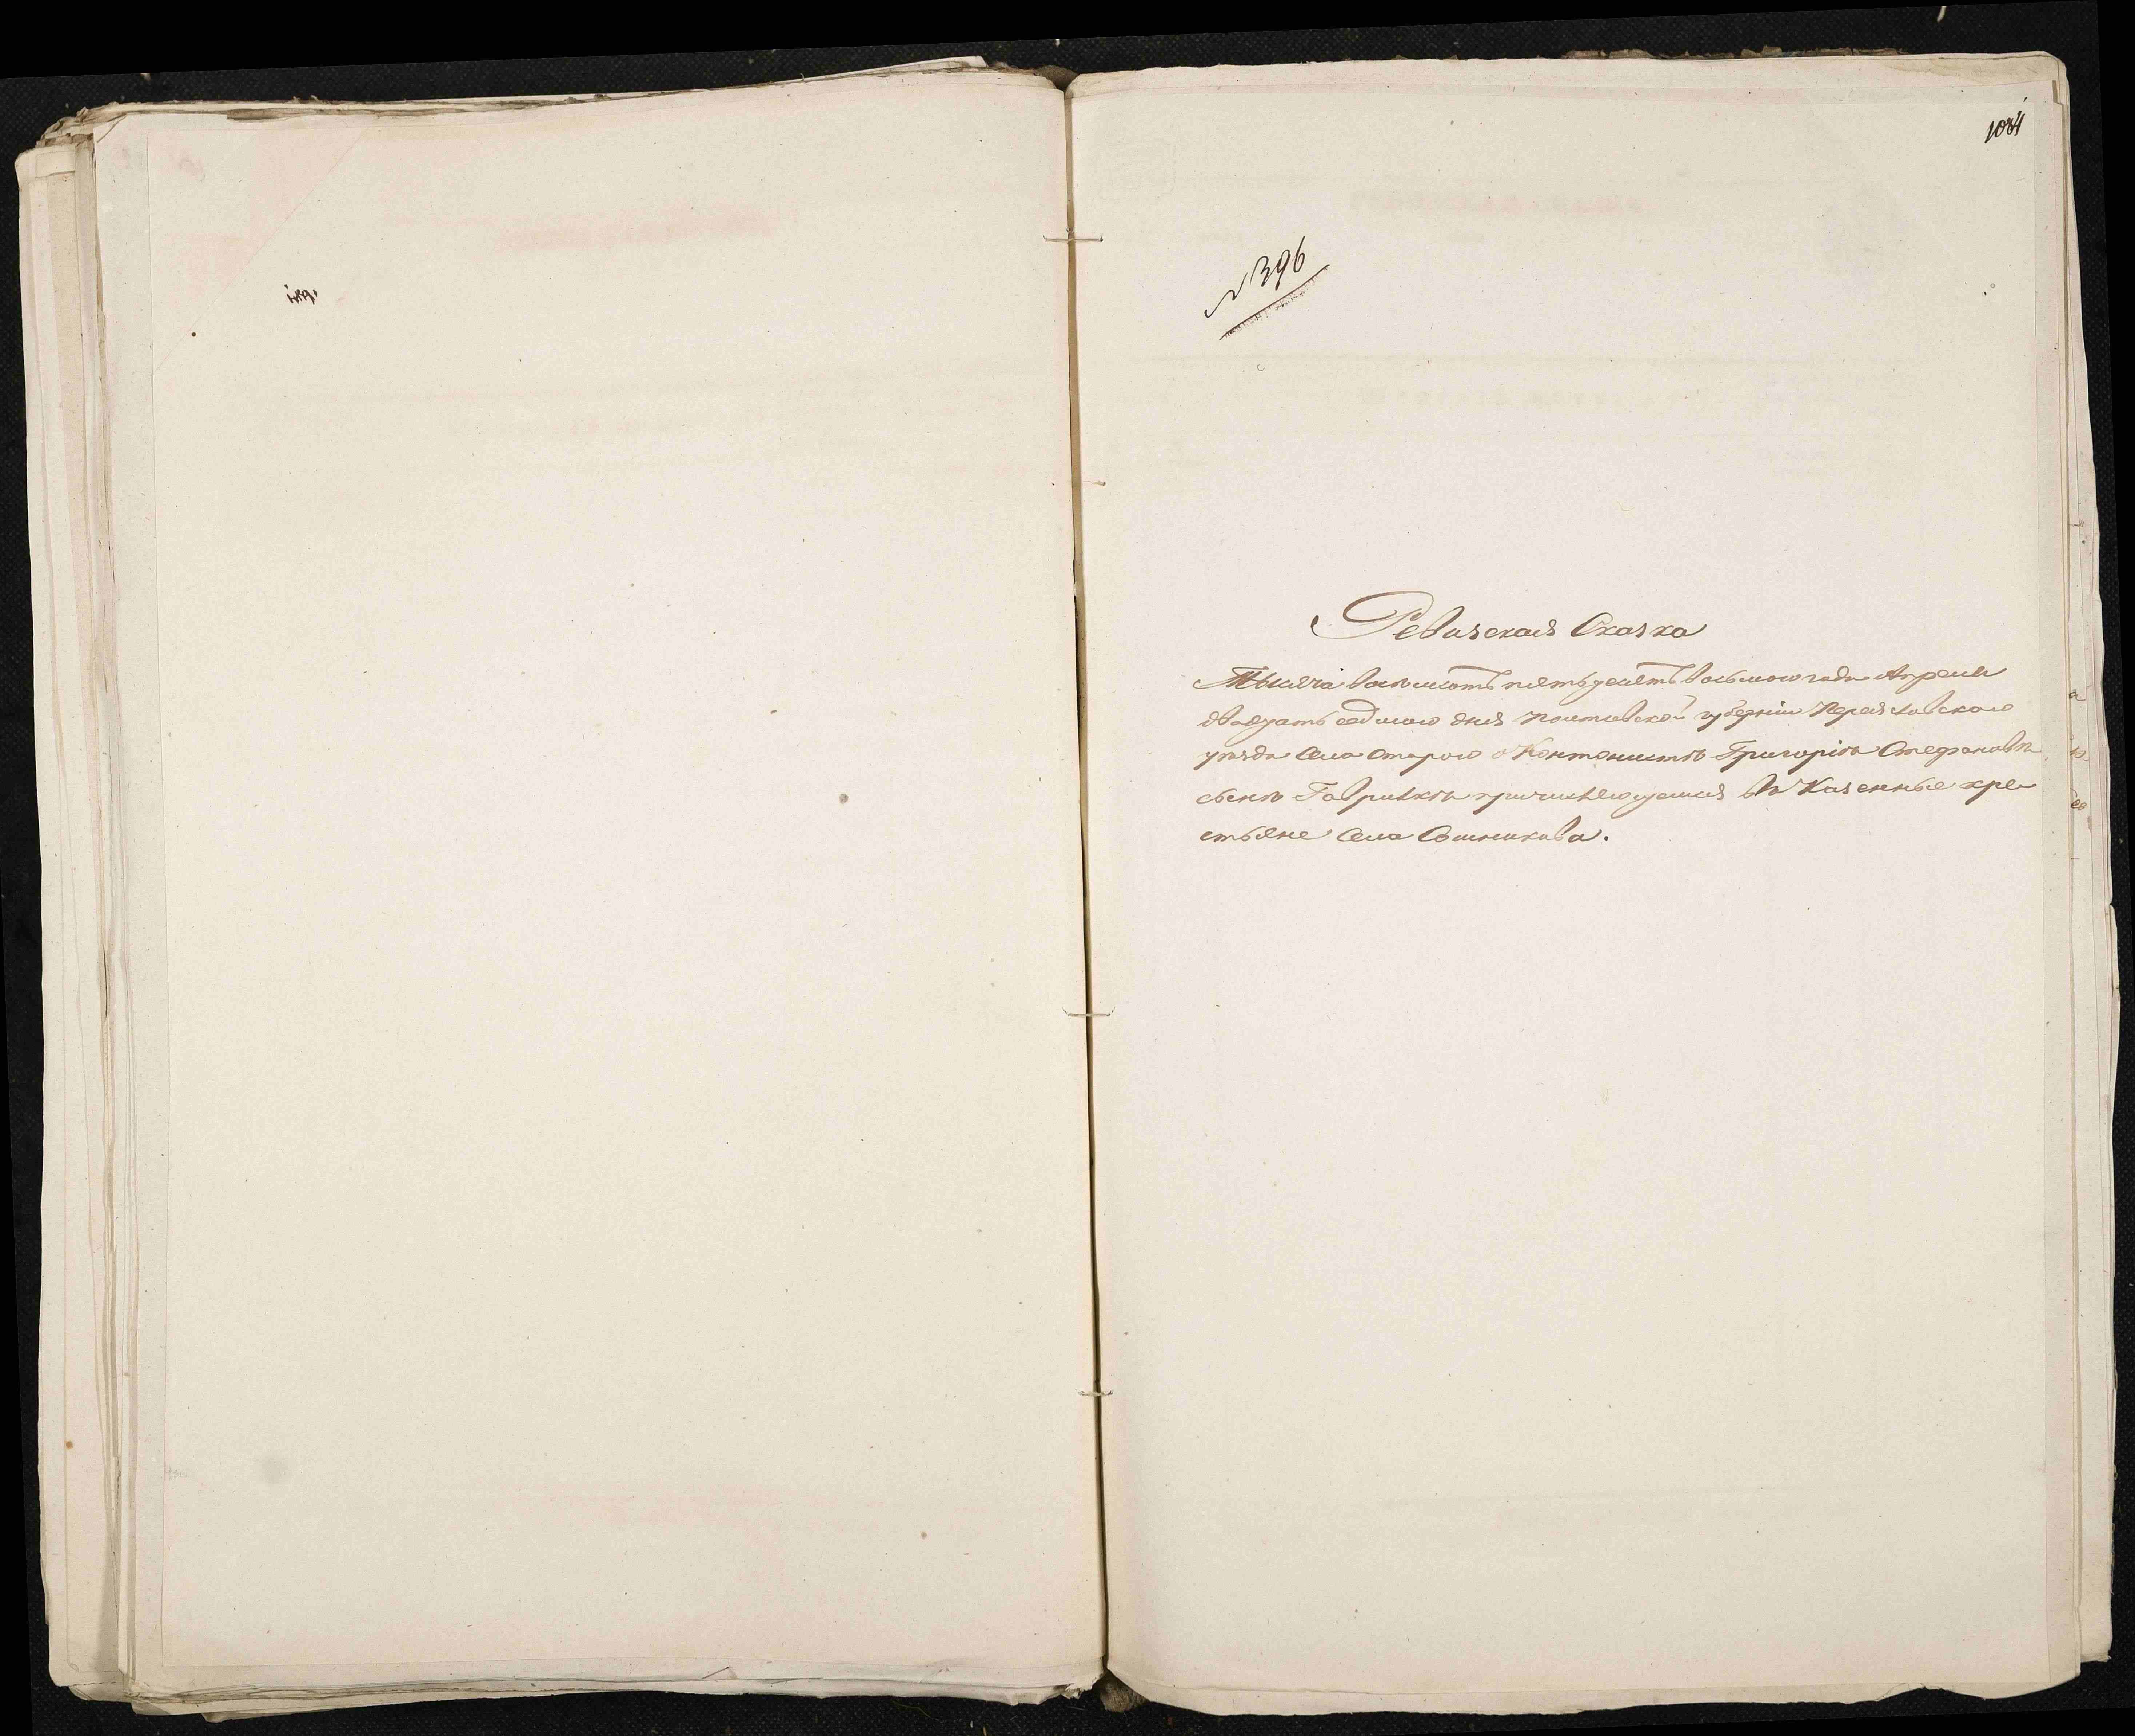 1084
№ 396
Ревизская Сказка
Тысяча восемсотъ пятьдесятъ восьмого года Апреля
двадцать седмого дня Полтавской губерніи Переяславского
уезда села Старого о Кантонистъ Григорій Стефановъ
сынъ Гаврилко причисляющемся въ Казенные кре
стьяне села Сошникова.